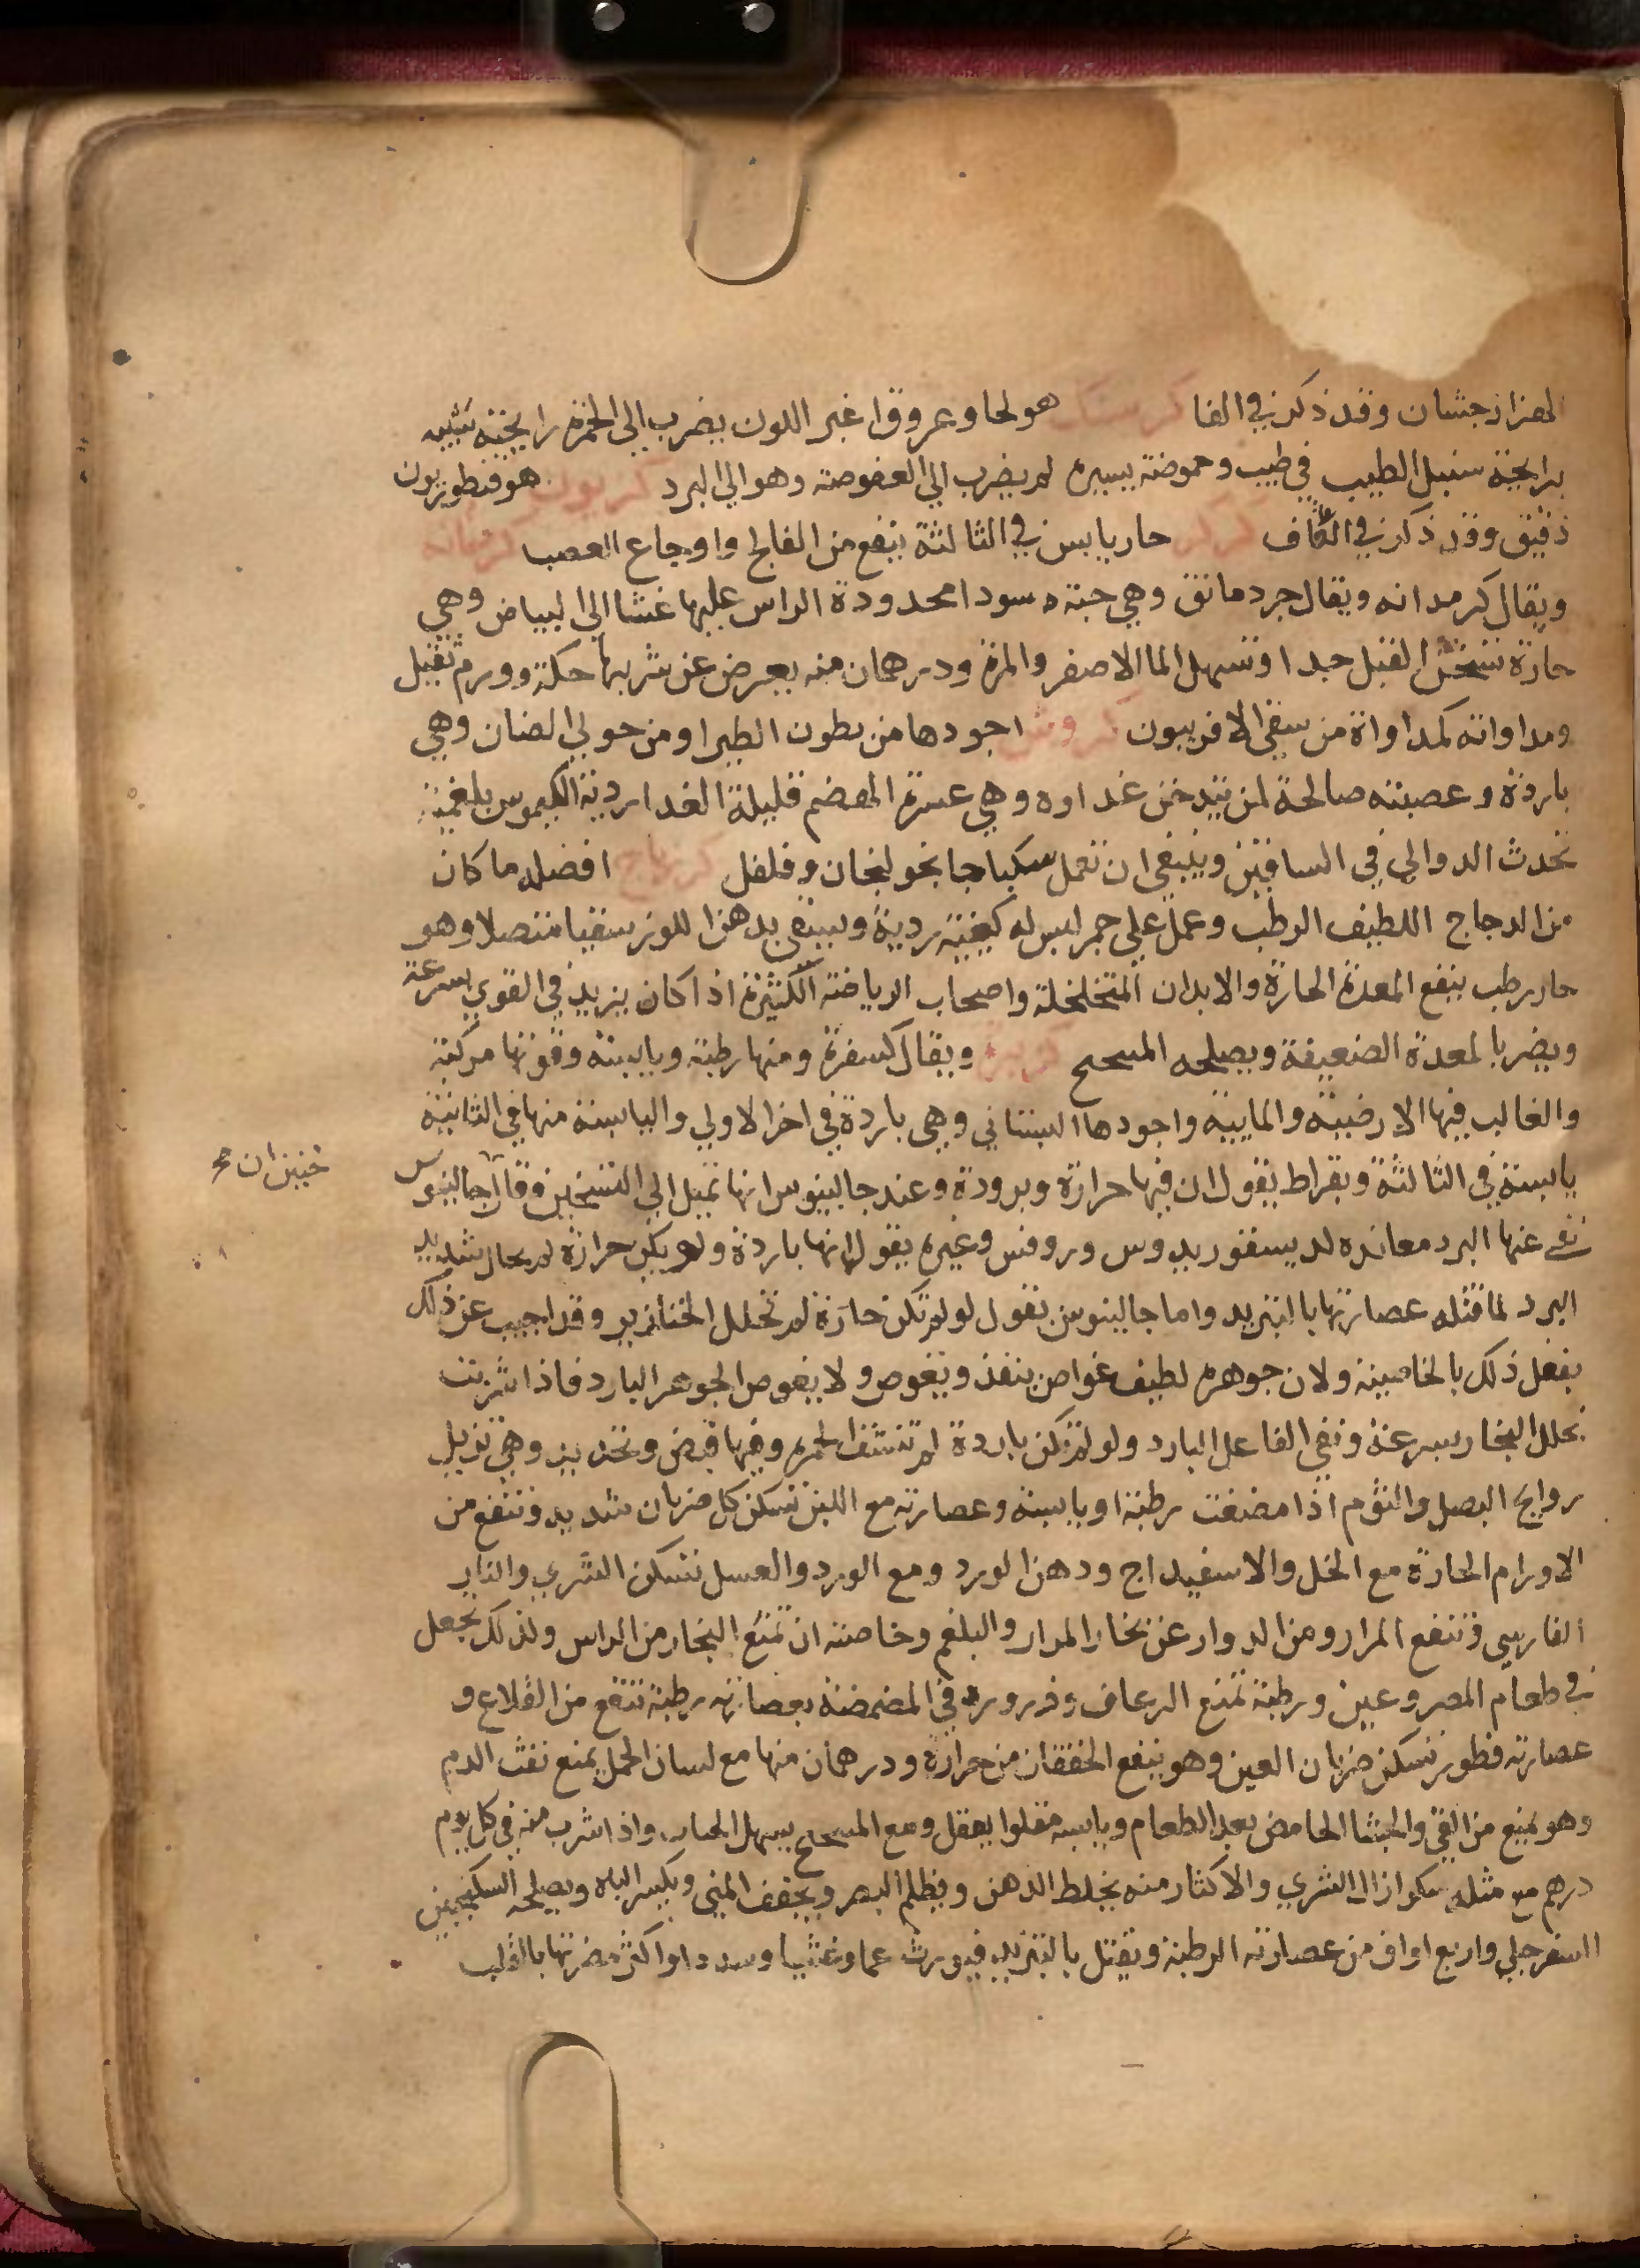 الهزارجشان وقد ذكر في الفا كرسنك هو لحا وعروق اغبر اللون يضرب الى الحمرة رايحته شبيه
برايحة سنبل الطيب في طيب وحموضة يسيره لم يضرب الي العفوصة وهو الي البرد كريون هو قنطوريون
دقيق وقد ذكر في القاف كركر حار يابس في الثالثة ينفع من الفالج واوجاع العصب كرمدانه
ويقال كرمدانه ويقال جردمانق وهي حبة سودا محدودة الراس عليها غشا الي البياض وهي
حارة تسخن القبل جدا وتسهل الما الاصفر والمرة ودرهمان منه يعرض عن شربها حكة وورم ثقيل
ومداواته كمداواة من سقي الافربيون كروش اجودها من بطون الطير او من حولي الضان وهي
باردة وعصبته صالحة لمن يتدخن غداوه وهي عسرة الهضم قليلة الغدا ردية الكيموس بلغمية
تحدث الدوالي في الساقين وينبغي ان تعمل سكباجا بخولنجان وفلفل كرذباج افضله ما كان
من الدجاج اللطيف الرطب وعمل علي جمر ليس له كيفية ردية ويسقي بدهن اللوز سقيا متصلا وهو
حار رطب ينفع المعدة الحارة والابدان المتخلخلة واصحاب الرياضة الكثيرة اذا كان يزيد في القوي بسرعة
ويضر بالمعدة الضعيفة ويصلحه الملح كزبرة ويقال كسفرة ومنها رطبة ويابسة وقوتها مركبة
والغالب فيها الارضية والمايية واجودها البستاني وهي باردة في اخر الاولي واليابسة منها في الثانية
يابسة في الثالثة وبقراط يقول ان فيها حرارة وبرودة وعند جالينوس انها تميل الي التسخين وقال جالينوس
نفى عنها البرد معانده لديسقوريدوس وروفس وغيره يقول انها باردة ولو يكن حرارة لم يحال شديد
البرد لما قتله عصارتها بالتبريد واما جالينوس يقول لو لم تكن حارة لم تحلل الخنازير وقد اجيب عن ذلك
بفعل ذلك بالخاصية ولان جوهره لطيف غواص ينفذ ويغوص ولا يغوص الجوهر البارد فاذا شربت
تحلل البخار بسرعة ونفي الفاعل البارد ولو لم تكن باردة لم تشف الحمرة وفيها قبض وتخدير وهي تزيل
روايح البصل والثوم اذا مضغت رطبة او يابسة وعصارته مع اللبن تسكن كل ضربان شديد وتنفع من
الاورام الحارة مع الخل والاسفيداج ودهن الورد ومع الورد والعسل تسكن الشري والنار
الفارسي وتنفع المرار ومن الدوار عن بخار المرار والبلغم وخاصته ان تمنع البخار من الراس ولذلك تجعل
في طعام المصروعين ورطبة تمنع الرعاف وذروره في المضمضة بعصارته رطبة تنفع من القلاع و
عصارته قطور تسكن ضربان العين وهو ينفع الخفقان من حرارة ودرهمان منها مع لسان الحمل يمنع نفث الدم
وهو يمنع من القي والجشا الحامض بعد الطعام ويابسه مقلوا يعقل ومع الملح يسهل الحيات واذا شرب منه في كل يوم
درهم مع مثله سكر ازال الشري والاكثار منه يخلط الذهن ويظلم البصر ويجفف المني ويكسر الباه ويصلحه السكنجبين
السفرجلي واربع اواق من عصارته الرطبة ويقتل بالتبريد فيورث غما وغشيا وسددا واكثر مضرتها بالقلب